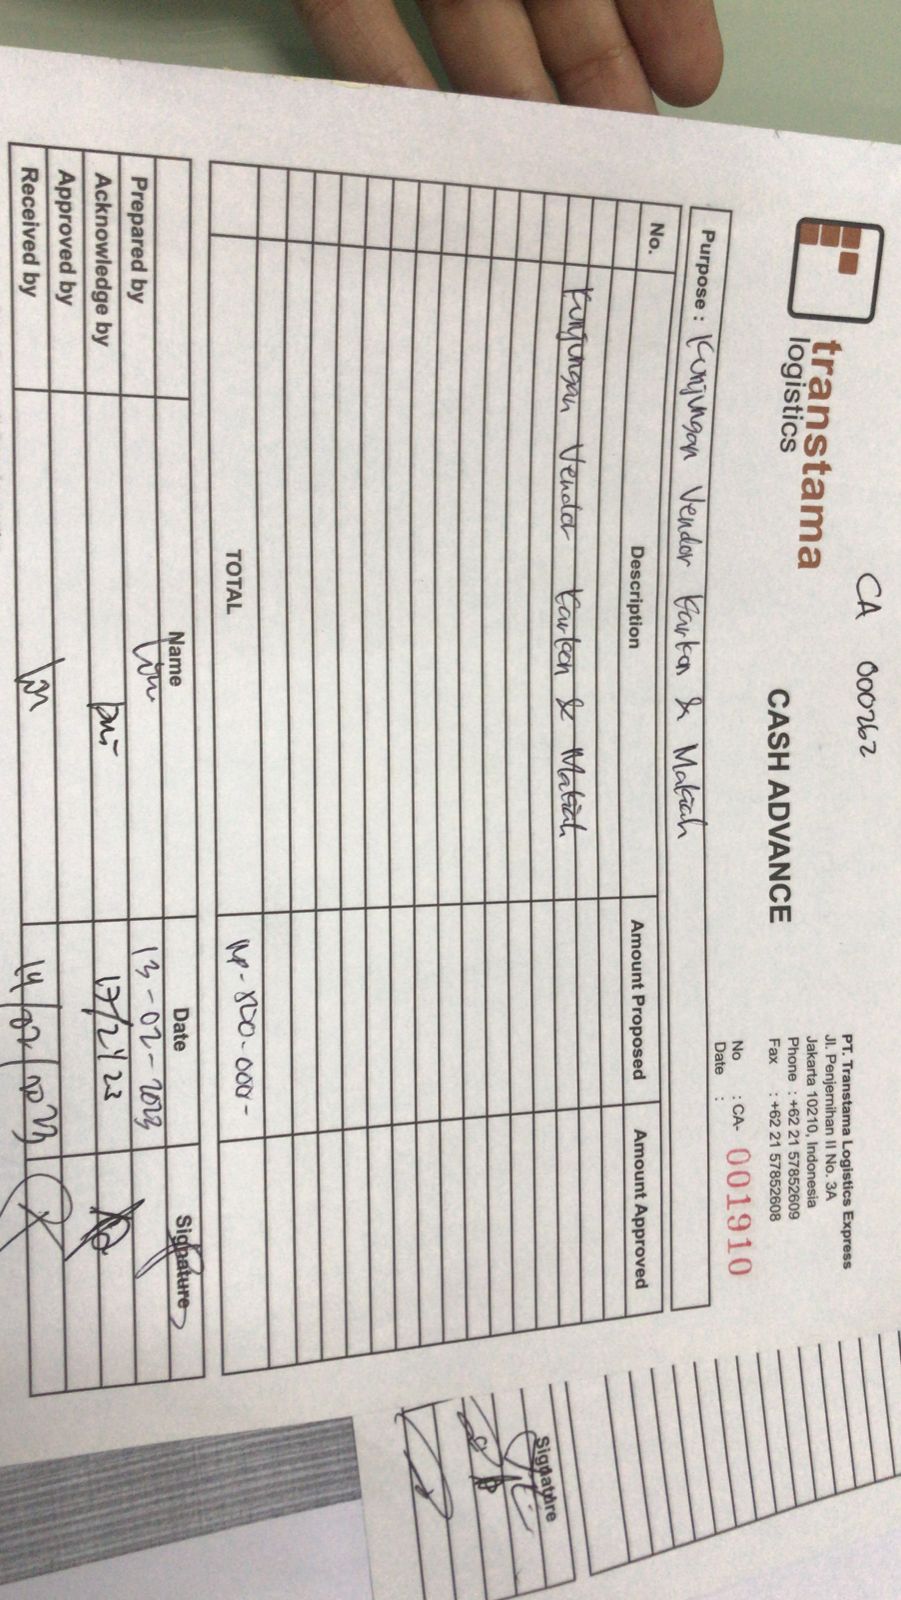 CA 000262
transtama
logistics
CASH ADVANCE
PT. Transtama Logistics Express
Jl. Penjernihan II No. 3A
Jakarta 10210, Indonesia
Phone : +62 21 57852609
Fax : +62 21 57852608
No : CA- 001910
Date :
Purpose : Kunjungan Vendor Karton &
No. Description Amount Proposed Amount Approved
Kunjungan Vendor Karton &
TOTAL Rp. 800.000,-
Name Date Signature
Prepared by 13-02-2023
Acknowledge by
Approved by
Received by 14/02/2023
Signature